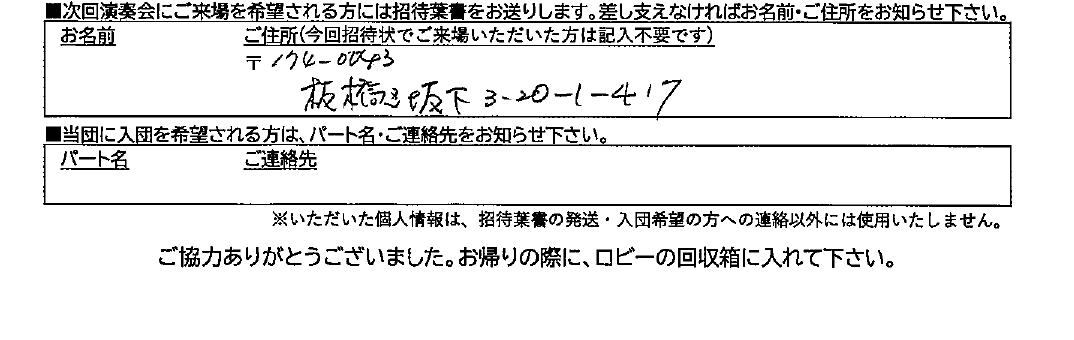 ■次回演奏会にご来場を希望される方には招待葉書をお送りします。差し支えなければお名前・ご住所をお知らせ下さい。
お名前 ご住所(今回招待状でご来場いただいた方は記入不要です)
〒174-0043
板橋区坂下3-20-1-417
■当団に入団を希望される方は、パート名・ご連絡先をお知らせ下さい。
パート名 ご連絡先
※いただいた個人情報は、招待葉書の発送・入団希望の方への連絡以外には使用いたしません。
ご協力ありがとうございました。お帰りの際に、ロビーの回収箱に入れて下さい。